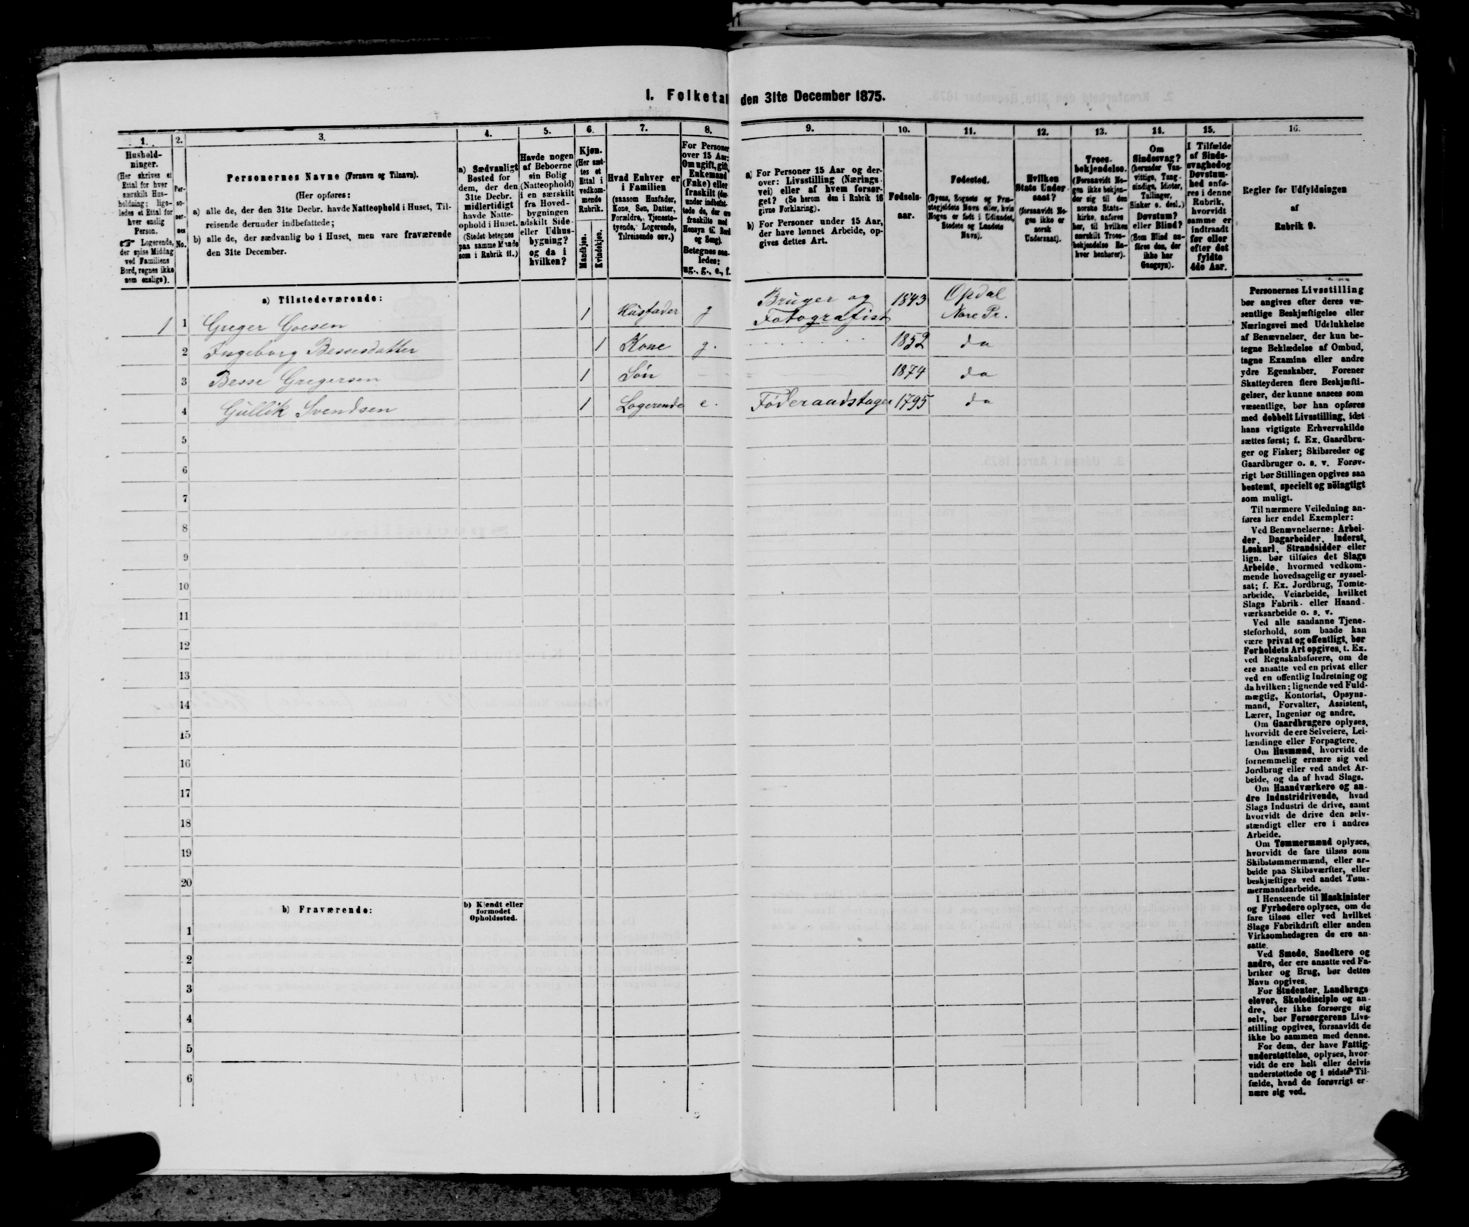 I. Folketal den 31te December 1875.
1. 2. 3. 4. 5. 6. 7. 8. 9. 10. 11. 12. 13. 14. 15. 16.
Hushold-
ninger.
(Her skrives et
Ettal for hver
særskilt Hus-
holdning; lige-
ledes et Ettal for
hver enslig
Person.
☞ Logerende,
der spise Middag
ved Familiens
Bord, regnes ikke
som enslige).
Per-
so-
ner-
nes
No.
Personernes Navne (Fornavn og Tilnavn).
(Her opføres:
a) alle de, der den 31te Decbr. havde Natteophold i Huset, Til-
reisende derunder indbefattede;
b) alle de, der sædvanlig bo i Huset, men vare fraværende
den 31te December.
a) Sædvanligt
Bosted for
dem, der den
31te Decbr.
midlertidigt
havde Natte-
ophold i Huset.
(Stedet betegnes
paa samme Maade
som i Rubrik 11.)
Havde nogen
af Beboerne
sin Bolig
(Natteophold)
i en særskilt
fra Hoved-
bygningen
adskilt Side-
eller Udhus-
bygning?
og da i
hvilken?
Kjøn.
(Her sæt-
tes et
Ettal i
vedkom-
mende
Rubrik.
Mandkjøn.
Kvindekjøn.
Hvad Enhver er
i Familien
(saasom Husfader,
Kone, Søn, Datter,
Formldre, Tjeneste-
tyende, Logerende,
Tilreisende osv.)
For Personer
over 15 Aar:
Om ugift, gift,
Enkemand
(Enke) eller
fraskilt
Betegnes saa-
ledes:
ug., g., e., f.
a) For Personer 15 Aar og der-
over: Livsstilling (Nærings-
vei) eller af hvem forsør-
get? (Se herom den i Rubrik 16
givne Forklaring).
b) For Personer under 15 Aar,
der have lønnet Arbeide, op-
gives dettes Art.
Fødsels-
aar.
Fødested.
(Byens, Sognets og Præ-
stegjeldets Navn eller, hvis
Nogen er født i Udlandet,
Stedets og Landets
Navn).
Hvilken
Stats Under-
saat?
(forsaavidt No-
gen ikke er
norsk
Undersaat).
Troes-
bekjendelse.
(Forsaavidt No-
gen ikke bekjen-
der sig til den
norske Stats-
kirke, anføres
her, til hvilken
særskilt Troes-
bekjendelse En-
hver henhører).
Om
Sindssvag?
(herunder Van-
vittige, Tung-
sindige, Idioter,
Tullinger,
Sinker o. desl.)
Døvstum?
eller Blind?
(Som Blind an-
føres den, der
ikke har
Gangsyn).
I Tilfælde
af Sinds-
svaghed og
Døvstum-
hed anfø-
res i denne
Rubrik,
hvorvidt
samme er
indtraadt
før eller
efter det
fyldte
4de Aar.
Regler for Udfyldningen
af
Rubrik 9.
a) Tilstedeværende:
1 1 Greger Goesen 1 Husfader g Bruger og Fotografist 1843 Opdal Nore Pr.
2 Ingeborg Bessesdatter 1 Kone g. 1852 do
3 Besse Gregersen 1 Søn 1874 do
4 Gullik Svendsen 1 Logerende e. Føderaadstager 1795 do
5
6
7
8
9
10
11
12
13
14
15
16
17
18
19
20
b) Fraværende:
b) Kjendt eller
formodet
Opholdssted.
1
2
3
4
5
6
Personernes Livsstilling
bør angives efter deres væ-
sentlige Beskjæftigelse eller
Næringsvei med Udelukkelse
af Benævnelser, der kun be-
tegne Beklædelse af Ombud,
tagne Examina eller andre
ydre Egenskaber. Forener
Skatteyderen flere Beskjæfti-
gelser, der kunne ansees som
væsentlige, bør han opføres
med dobbelt Livsstilling, idet
hans vigtigste Erhvervskilde
sættes først; f. Ex. Gaardbru-
ger og Fisker; Skibsreder og
Gaardbruger o. s. v. Forøv-
rigt bør Stillingen opgives saa
bestemt, specielt og nöiagtigt
som muligt.
Til nærmere Veiledning an-
føres her endel Exempler:
Ved Benævnelserne: Arbei-
der, Dagarbeider, Inderst,
Løskarl, Strandsidder eller
lign. bør tilføies det Slags
Arbeide, hvormed vedkom-
mende hovedsagelig er syssel-
sat; f. Ex. Jordbrug, Tomte-
arbeide, Veiarbeide, hvilket
Slags Fabrik- eller Haand-
værksarbeide o. s. v.
Ved alle saadanne Tjene-
steforhold, som baade kan
være privat og offentligt, bør
Forholdets Art opgives, t. Ex.
ved Regnskabsførere, om de
ere ansatte ved en privat eller
ved en offentlig Indretning og
da hvilken; lignende ved Fuld-
mægtig, Kontorist, Opsyns-
mand, Forvalter, Assistent,
Lærer, Ingeniør og andre.
Om Gaardbrugere oplyses,
hvorvidt de ere Selveiere, Lei-
lændinge eller Forpagtere.
Om Husmænd, hvorvidt de
fornemmelig ernære sig ved
Jordbrug eller ved andet Ar-
beide, og da af hvad Slags.
Om Haandværkere og an-
dre Industridrivende, hvad
Slags Industri de drive, samt
hvorvidt de drive den selv-
stændigt eller ere i andres
Arbeide.
Om Tømmermænd oplyses,
hvorvidt de fare tilsøs som
Skibstømmermænd, eller ar-
beide paa Skibsværfter, eller
beskjæftiges ved andet Tøm-
mermandsarbeide.
I Henseende til Maskinister
og Fyrbødere oplyses, om de
fare tilsøs eller ved hvilket
Slags Fabrikdrift eller anden
Virksomhedsgren de ere an-
satte.
Ved Smede, Snedkere og
andre, der ere ansatte ved Fa-
briker og Brug, bør dettes
Navn opgives.
For Studenter, Landbrugs
elever, Skoledisciple og an-
dre, der ikke forsørge sig
selv, bør Forsørgerens Livs-
stilling opgives, forsaavidt de
ikke bo sammen med denne.
For dem, der have Fattig-
understøttelse, oplyses, hvor-
vidt de ere helt eller delvis
understøttede og i sidste Til-
fælde, hvad de forøvrigt er-
nære sig ved.